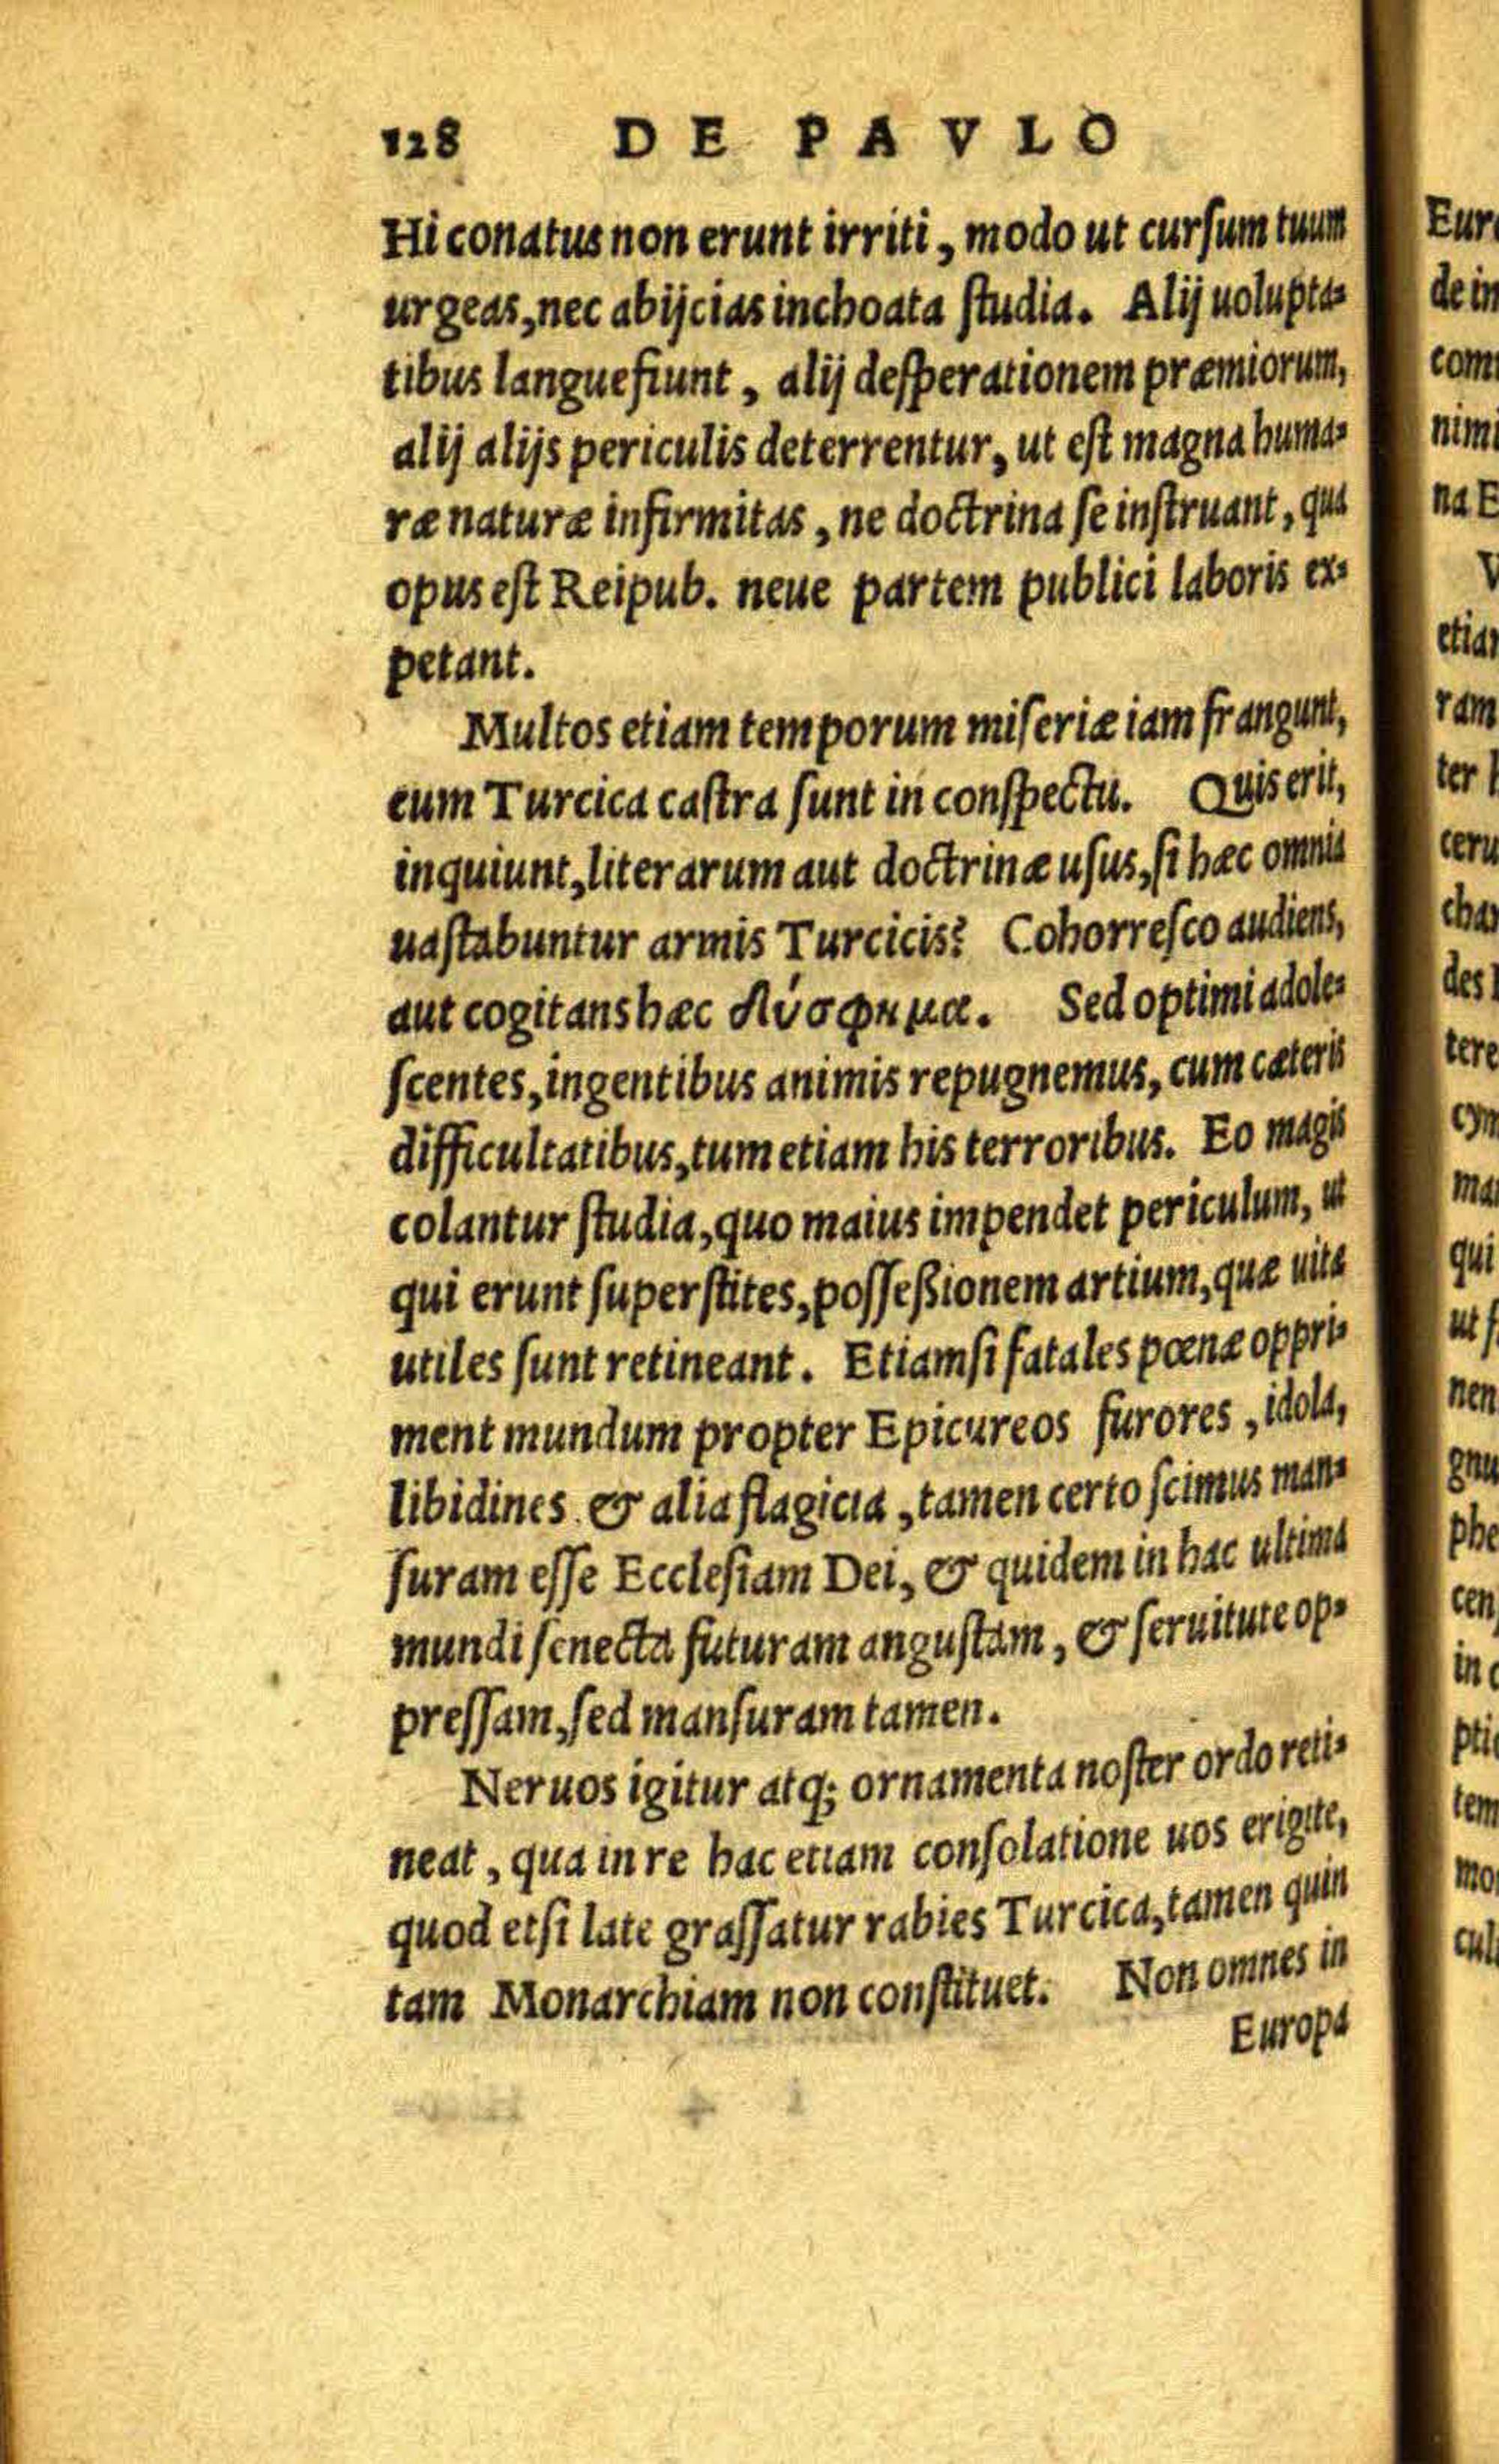 128 DE PAVLO
Hi conatus non erunt irriti, modo ut cursum tuum
urgeas, nec abijcias inchoata studia. Alij uolupta-
tibus languefiunt, alij desperationem præmiorum,
alij alijs periculis deterrentur, ut est magna huma-
ræ naturæ infirmitas, ne doctrina se instruant, qua
opus est Reipub. neue partem publici laboris ex-
petant.
Multos etiam temporum miseriæ iam frangunt,
cum Turcica castra sunt in conspectu. Quis erit,
inquiunt, literarum aut doctrinæ usus, si hæc omnia
uastabuntur armis Turcicis? Cohorresco audiens,
aut cogitans hæc δύσφημα. Sed optimi adole-
scentes, ingentibus animis repugnemus, cum cæteris
difficultatibus, tum etiam his terroribus. Eo magis
colantur studia, quo maius impendet periculum, ut
qui erunt superstites, posseßionem artium, quæ uitæ
utiles sunt retineant. Etiamsi fatales pœnæ oppri-
ment mundum propter Epicureos furores, idola,
libidines & alia flagicia, tamen certo scimus man-
suram esse Ecclesiam Dei, & quidem in hac ultima
mundi senecta futuram angustam, & seruitute op-
pressam, sed mansuram tamen.
Neruos igitur atq; ornamenta noster ordo reti-
neat, qua in re hac etiam consolatione uos erigite,
quod etsi late grassatur rabies Turcica, tamen quin
tam Monarchiam non constituet. Non omnes in
Europa